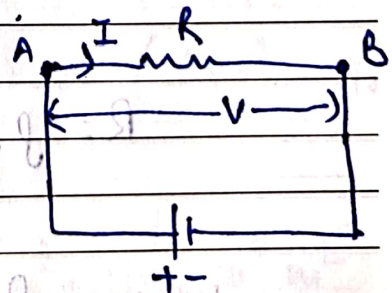 A I R B
V
+ -